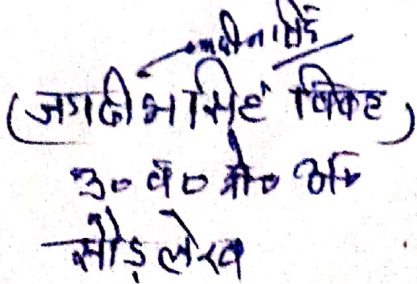 (जगदीश सिंह बिष्ट)
उ० व० क्षे० अधि
सौड़ लेख